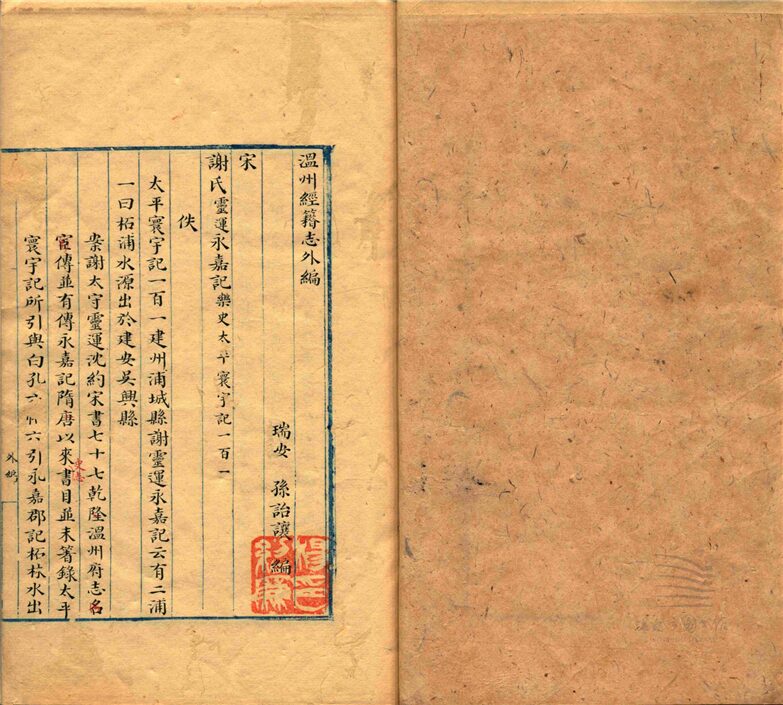 溫州經籍志外編
瑞安　孫詒讓　編
宋
謝氏靈運永嘉記樂史太平寰宇記一百一
佚
太平寰宇記一百一建州浦城縣謝靈運永嘉記云有二浦
一曰柘浦水源出於建安吳興縣
案謝太守靈運沈約宋書七十七乾隆溫州府志名
宦傳並有傳永嘉記隋唐以來書目並未箸錄太平
史志
寰宇記所引與白孔六帖六引永嘉郡記柘林水出
外編